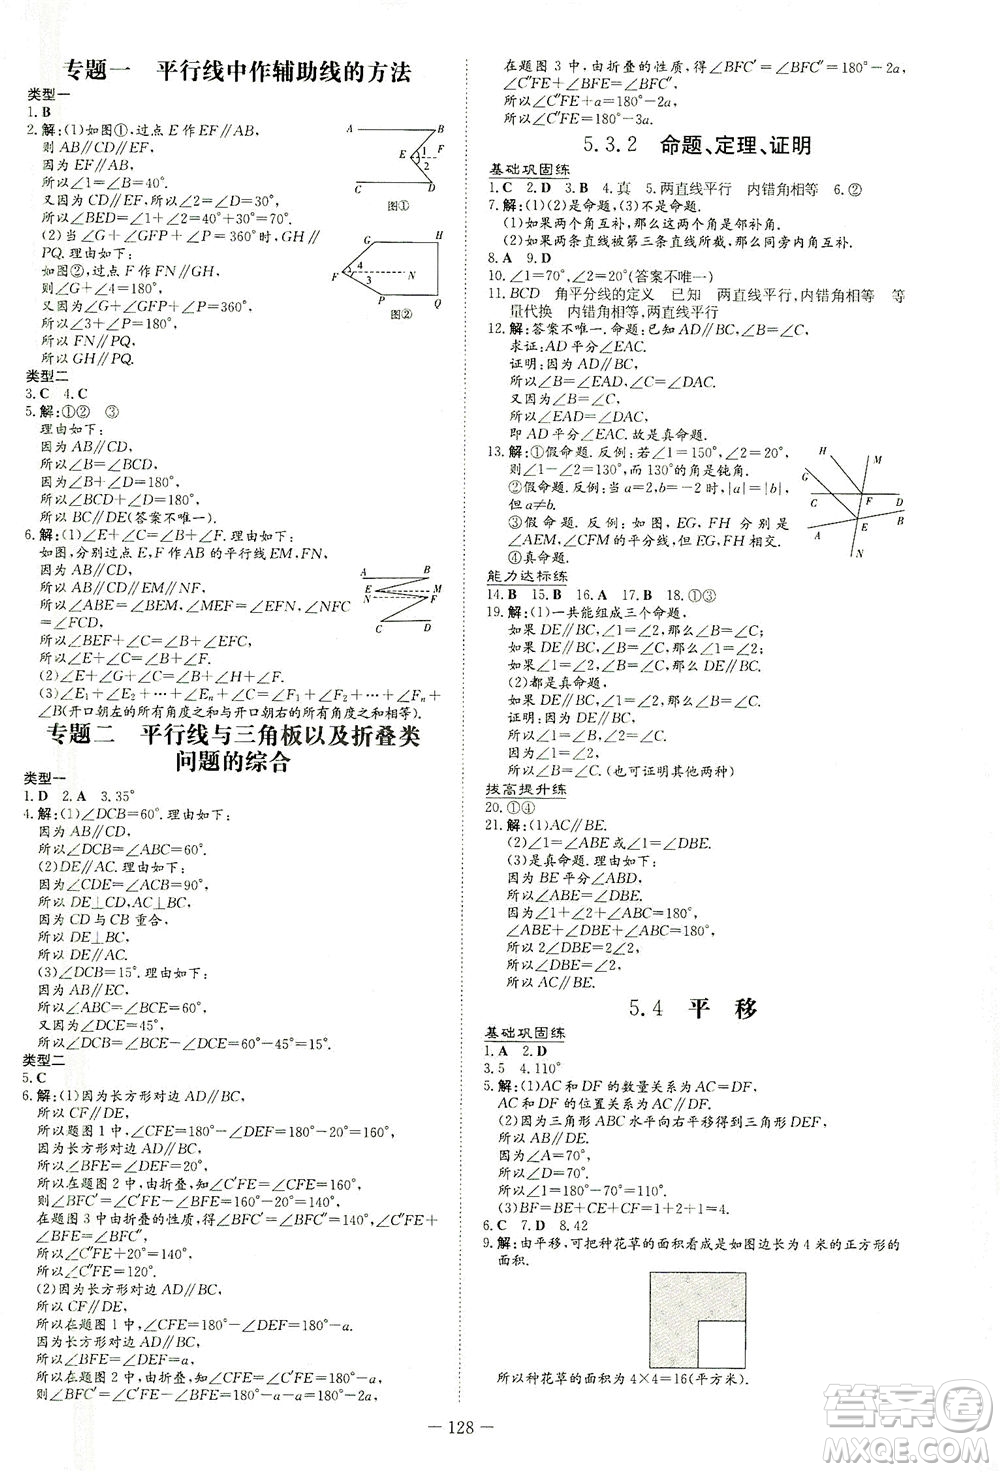 专题一　平行线中作辅助线的方法
类型一
1. B
2. 解:(1)如图①,过点 E 作 EF∥AB,
则 AB∥CD∥EF.
因为 EF∥AB,
所以∠1=∠B=40°.
又因为 CD∥EF,所以∠2=∠D=30°,
所以∠BED=∠1+∠2=70°.
(2)当∠G+∠GFP+∠P=360°时,GH∥
PQ.理由如下:
如图②,过点 F 作 FN∥GH,
则∠4+∠G=180°.
又因为∠G+∠GFP+∠P=360°,
所以∠3+∠P=180°,
所以 FN∥PQ,
所以 GH∥PQ.
A B E 1 2 C D
图①
G H F 4 3 N P Q
图②
类型二
3. C　4. C
5. 解:①②　③
理由如下:
因为 AB∥CD,
所以∠B=∠C.
因为∠B+∠D=180°,
所以∠C+∠D=180°,
所以 BC∥DE(答案不唯一).
6. 解:(1)∠E+∠C=∠B+∠F.理由如下:
如图,分别过点 E,F 作 AB 的平行线 EM,FN,
因为 AB∥CD,
所以 AB∥CD∥EM∥FN,
所以∠ABE=∠BEM,∠MEF=∠EFN,∠NFC
=∠FCD,
所以∠BEF+∠C=∠B+∠EFC,
所以∠E+∠C=∠B+∠F.
(2)∠E+∠G=∠B+∠F+∠H+∠C.
(3)∠E₁+∠E₂+…+∠Eₙ+∠C=∠F₁+∠F₂+…+∠Fₙ+
∠B(开口朝左的所有角度之和与开口朝右的所有角度之和相等).
A B E M N F C D
专题二　平行线与三角板以及折叠类
问题的综合
类型一
1. D　2. A　3.35°
4. 解:(1)∠DCB=60°.理由如下:
因为 AB∥CD,
所以∠DCB=∠ABC=60°.
(2)DE∥AC.理由如下:
因为∠CDE=∠ACB=90°,
所以 DE⊥CD,AC⊥BC.
因为 CD 与 CB 重合,
所以 DE⊥BC,
所以 DE∥AC.
(3)∠DCB=15°.理由如下:
因为 AB∥CE,
所以∠ABC=∠BCE=60°,
又因为∠DCE=45°,
所以∠DCB=60°-45°=15°.
类型二
5. C
6. 解:(1)因为长方形对边 AD∥BC,
所以 CF∥DE,
所以题图 1 中,∠CFE=180°-∠DEF=180°-20°=160°,
因为长方形对边 AD∥BC,
所以∠BFE=∠DEF=20°,
所以在题图 2 中,由折叠,知∠C′FE=∠CFE=160°,
则∠BFC′=∠C′FE-∠BFE=160°-20°=140°,
在题图 3 中由折叠的性质,得∠BFC″=∠BFC′=140°,∠C″FE+
∠BFE=∠BFC″
所以∠C″FE+20°=140°,
所以∠C″FE=120°.
(2)因为长方形对边 AD∥BC,
所以 CF∥DE,
所以在题图 1 中,∠CFE=180°-∠DEF=180°-a.
因为长方形对边 AD∥BC,
所以∠BFE=∠DEF=a,
所以在题图 2 中,由折叠,知∠C′FE=∠CFE=180°-a,
则∠BFC′=∠C′FE-∠BFE=180°-a-a=180°-2a,
在题图 3 中,由折叠的性质,得∠BFC′=∠BFC″=180°-2a,
∠C″FE+∠BFE=∠BFC″
所以∠C″FE+a=180°-2a,
所以∠C″FE=180°-3a.
5.3.2　命题、定理、证明
基础巩固练
1. C　2. D　3. B　4. 真　5. 两直线平行　内错角相等　6. ②
7. 解:(1)(2)是命题,(3)不是命题.
(1)如果两个角互补,那么这两个角是邻补角.
(2)如果两条直线被第三条直线所截,那么同旁内角互补.
8. A　9. D
10. ∠1=70°,∠2=70°(答案不唯一)
11. BCD　角平分线的定义　已知　两直线平行,内错角相等　等
量代换　内错角相等,两直线平行
12. 解:答案不唯一.命题:已知 AD∥BC,∠B=∠C.
求证:AD 平分∠EAC.
证明:因为 AD∥BC,
所以∠B=∠EAD,∠C=∠DAC.
又因为∠B=∠C,
所以∠EAD=∠DAC,
即 AD 平分∠EAC.故是真命题.
13. 解:①假命题.反例:若∠1=150°,∠2=20°,
则∠1-∠2=130°,而 130°的角是钝角.
②假命题.反例:当 a=2,b=-2 时,|a|=|b|,
但 a≠b.
③假命题.反例:如图,EG,FH 分别是
∠AEM,∠CFM 的平分线,但 EG 与 FH 不平行.
④真命题.
H M G F C D B E A N
能力达标练
14. B　15. B　16. A　17. B　18. ①③
19. 解:(1)一共能组成三个命题.
如果 DE∥BC,∠1=∠2,那么∠B=∠C;
如果 DE∥BC,∠B=∠C,那么∠1=∠2;
如果∠1=∠2,∠B=∠C,那么 DE∥BC.
(2)都是真命题.
证明:因为 DE∥BC,
所以∠1=∠B,∠2=∠C.
因为∠1=∠2,
所以∠B=∠C.(也可证明其他两种)
拔高提升练
20. ①④
21. 解:(1)AC∥BE.
(2)∠1=∠ABE 或∠1=∠DBE.
(3)是真命题.理由如下:
因为 BE 平分∠ABD,
所以∠ABE=∠DBE.
因为∠1+∠2+∠ABC=180°,
∠ABE+∠DBE+∠ABC=180°,
所以 2∠DBE=∠1+∠2.
所以∠DBE=∠2,
所以 AC∥BE.
5.4　平　移
基础巩固练
1. A　2. D
3. 5　4. 110°
5. 解:(1)AC 和 DF 的数量关系为 AC=DF,
AC 和 DF 的位置关系为 AC∥DF.
(2)因为三角形 ABC 水平向右平移得到三角形 DEF,
所以 AB∥DF.
因为∠A=70°,
所以∠D=70°.
所以∠1=180°-70°=110°.
(3)BF=BE+CE+CF=1+2+1=4.
6. C　7. D　8.42
9. 解:由平移,可把种花草的面积看成是如图边长为 4 米的正方形的
面积.
所以种花草的面积为 4×4=16(平方米).
— 128 —
答案圈
MXQE.COM